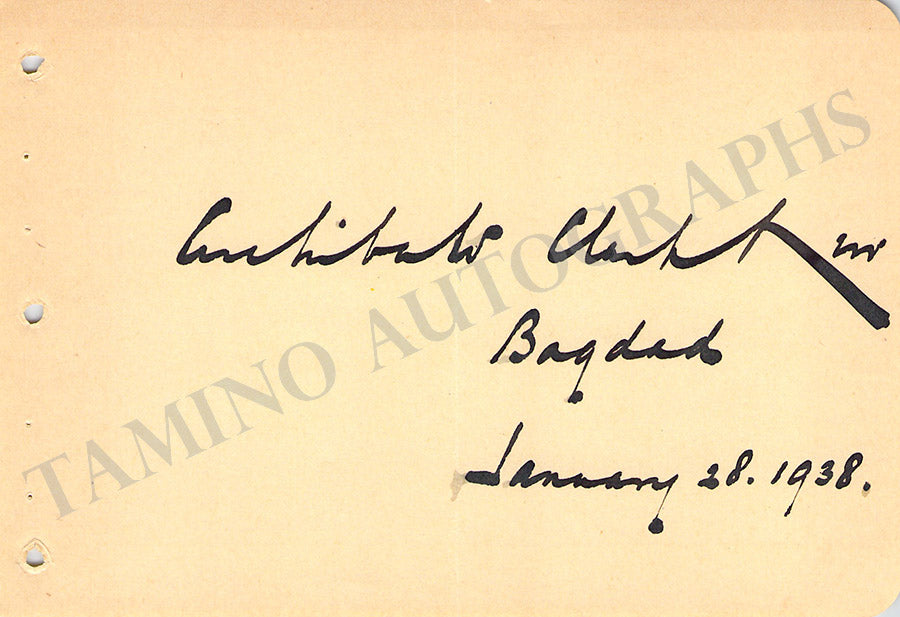 Archibald Clark Kerr
Bagdad
January 28. 1938.
TAMINO AUTOGRAPHS